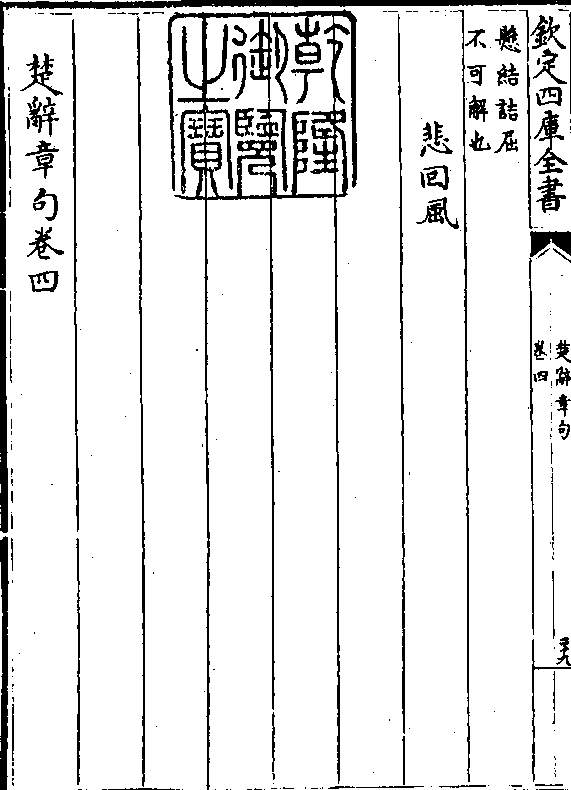 欽定四庫全書
楚辭章句
卷四
懸結詰屈
不可解也
悲回風
乾隆
御覽
之寶
楚辭章句卷四